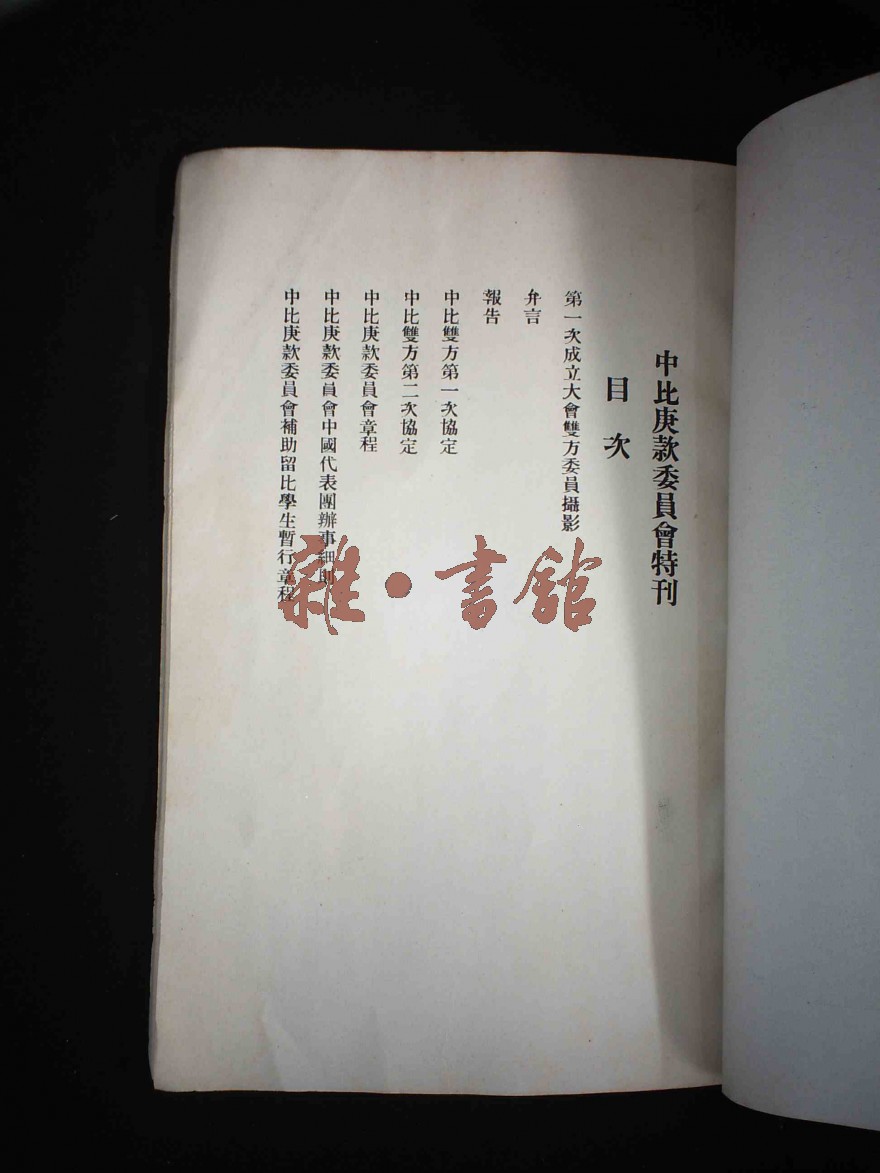 中比庚款委員會特刊
目次
第一次成立大會雙方委員攝影
弁言
報告
中比雙方第一次協定
中比雙方第二次協定
中比庚款委員會章程
中比庚款委員會中國代表團辦事細則
中比庚款委員會補助留比學生暫行章程
雜·書館